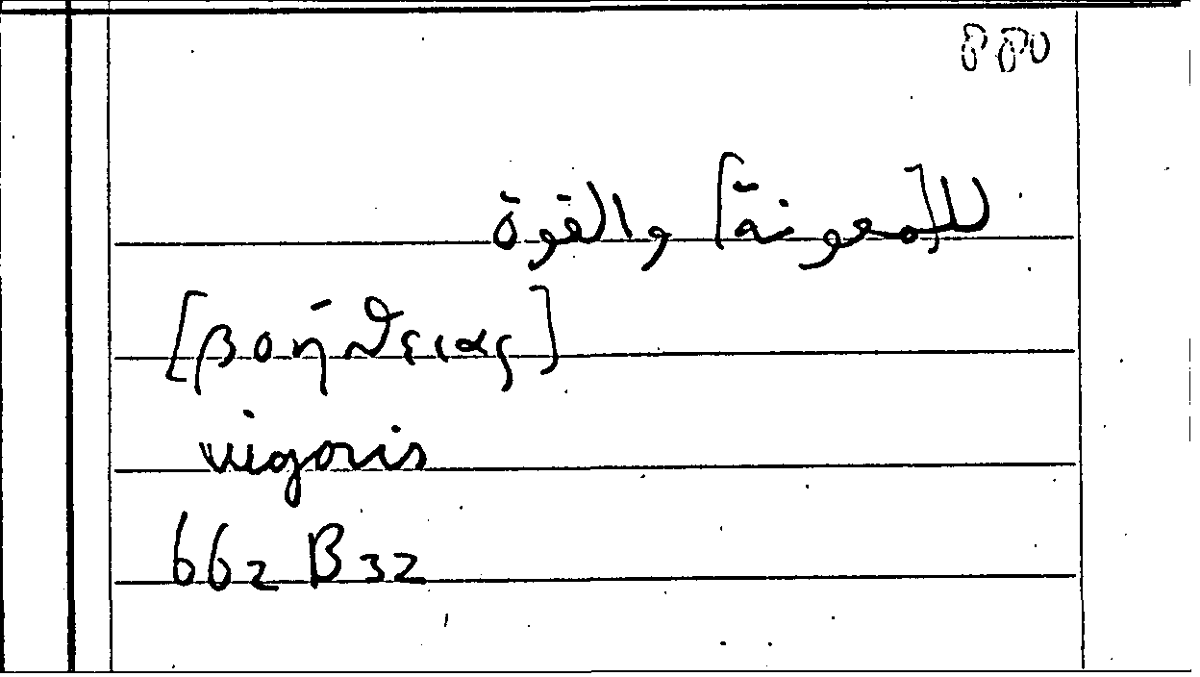 للـ[ـمعونة] والقوة
[βοήθειας]
vigoris
662 B 32